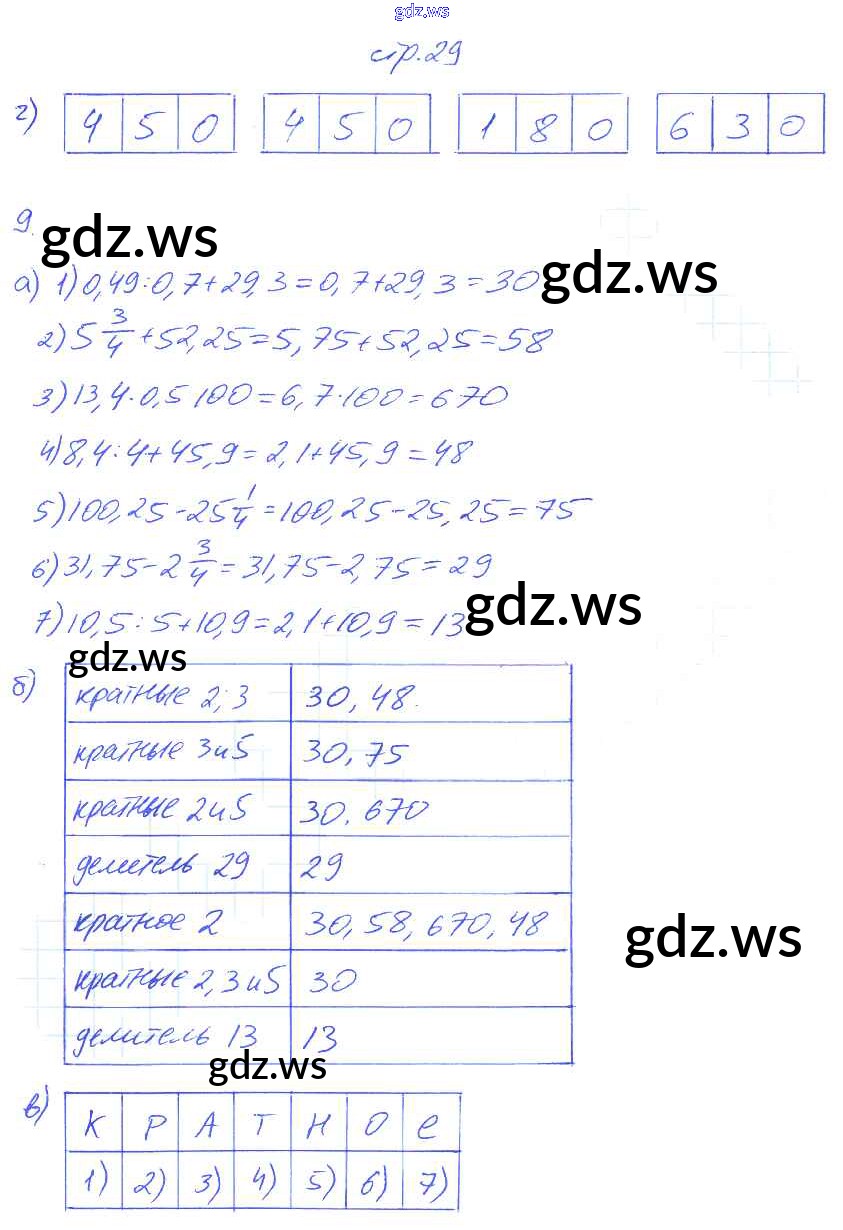 gdz.ws
стр.29
г) 4 5 0 4 5 0 1 8 0 6 3 0
9.
gdz.ws
а) 1) 0,49:0,7+29,3=0,7+29,3=30
gdz.ws
2) 5 3/4 +52,25=5,75+52,25=58
3) 13,4·0,5 100=6,7·100=670
4) 8,4:4+45,9=2,1+45,9=48
5) 100,25-25 1/4=100,25-25,25=75
6) 31,75-2 3/4=31,75-2,75=29
7) 10,5:5+10,9=2,1+10,9=13
gdz.ws
gdz.ws
б) кратные 2; 3 30, 48.
кратные 3 и 5 30, 75
кратные 2 и 5 30. 670
делитель 29 29
кратное 2 30, 58, 670, 48
gdz.ws
кратные 2, 3 и 5 30
делитель 13 13
gdz.ws
в) К Р А Т Н О е
1) 2) 3) 4) 5) 6) 7)